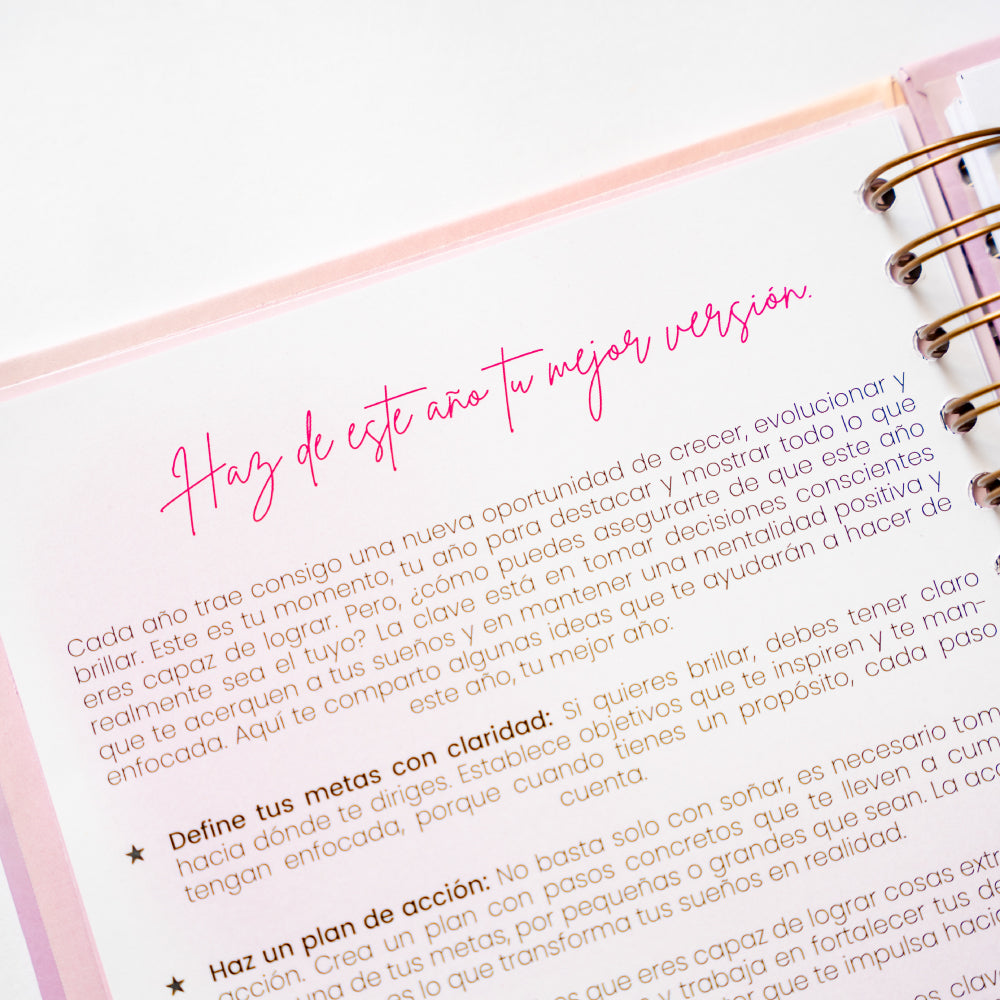 Haz de este año tu mejor versión.
Cada año trae consigo una nueva oportunidad de crecer, evolucionar y
brillar. Este es tu momento, tu año para destacar y mostrar todo lo que
eres capaz de lograr. Pero, ¿cómo puedes asegurarte de que este año
realmente sea el tuyo? La clave está en tomar decisiones conscientes
que te acerquen a tus sueños y en mantener una mentalidad positiva y
enfocada. Aquí te comparto algunas ideas que te ayudarán a hacer de
este año, tu mejor año:
★ Define tus metas con claridad: Si quieres brillar, debes tener claro
hacia dónde te diriges. Establece objetivos que te inspiren y te man-
tengan enfocada, porque cuando tienes un propósito, cada paso
cuenta.
★ Haz un plan de acción: No basta solo con soñar, es necesario tom
acción. Crea un plan con pasos concretos que te lleven a cum
una de tus metas, por pequeñas o grandes que sean. La acc
es lo que transforma tus sueños en realidad.
que eres capaz de lograr cosas extr
y trabaja en fortalecer tus de
que te impulsa haci
clav